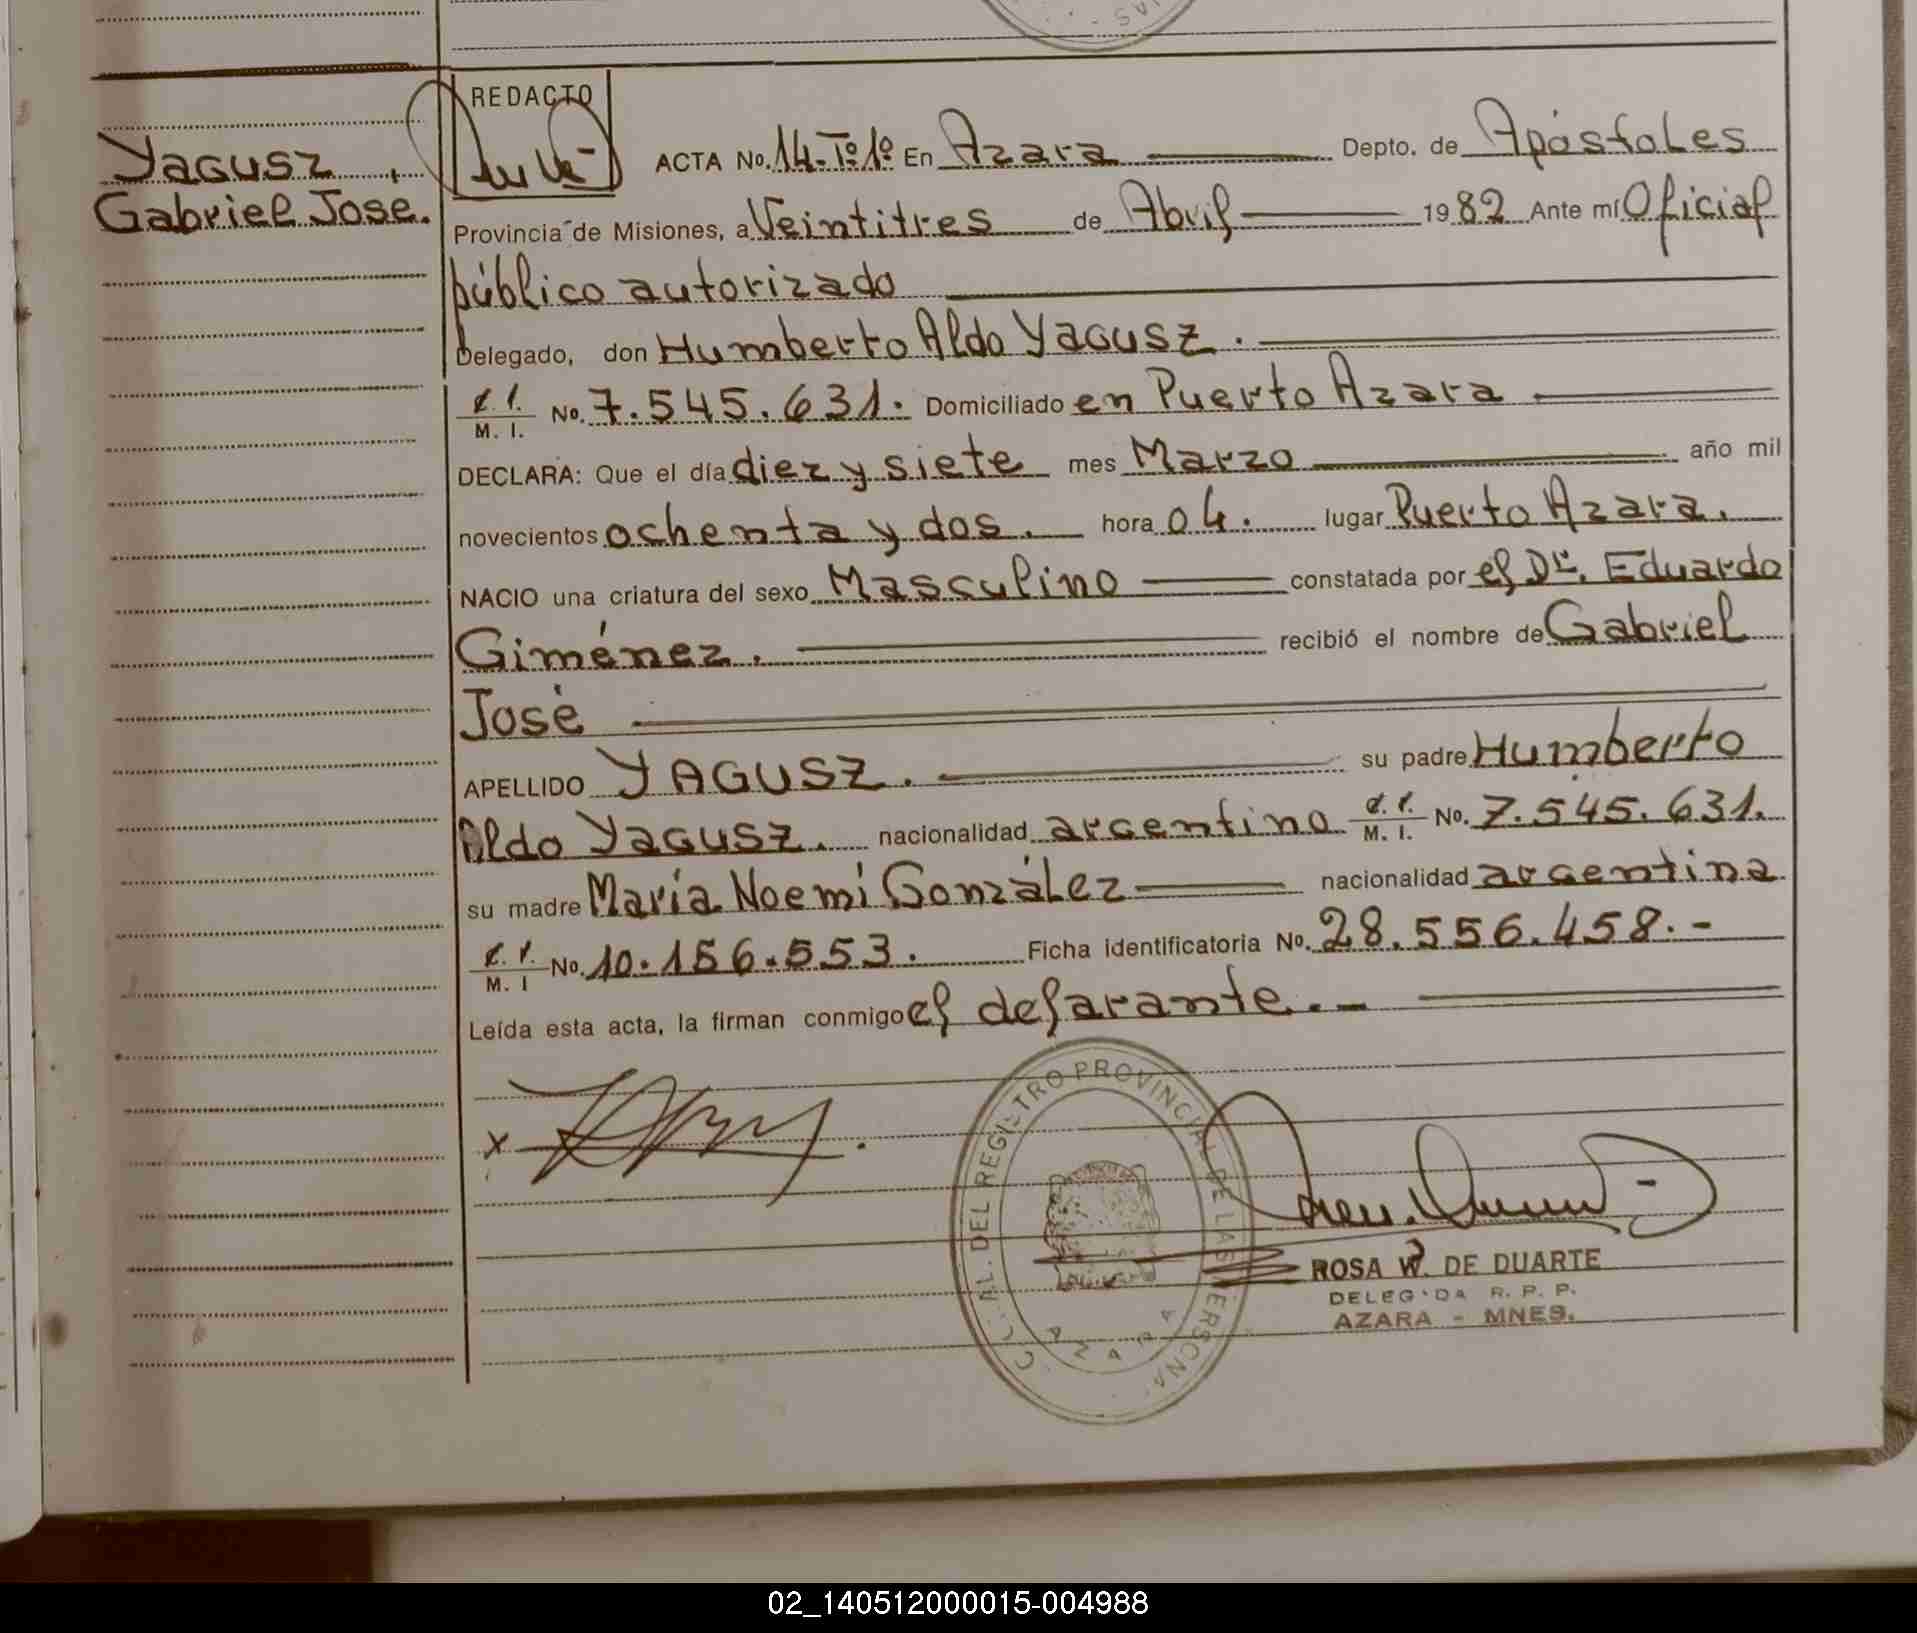 REDACTO
Yagusz,
Gabriel Jose.
ACTA No. 14-Tº1º En Azara Depto. de Apóstoles
Provincia de Misiones, a Veintitres de Abril 1982 Ante mí Oficial
público autorizado
Delegado, don Humberto Aldo Yagusz.
C. I. M. I. No. 7.545.631. Domiciliado en Puerto Azara
DECLARA: Que el día diez y siete mes Marzo año mil
novecientos ochenta y dos. hora 04. lugar Puerto Azara.
NACIO una criatura del sexo Masculino constatada por el Dr. Eduardo
Giménez. recibió el nombre de Gabriel
José
APELLIDO YAGUSZ. su padre Humberto
Aldo Yagusz. nacionalidad argentino C. I. M. I. No. 7.545.631.
su madre María Noemí González nacionalidad argentina
C. I. M. I No. 10.156.553. Ficha identificatoria No. 28.556.458.-
Leída esta acta, la firman conmigo el delarante.-
x
C. AL. DEL REGISTRO PROVINCIAL DE LAS PERSONAS
AZARA
ROSA W. DE DUARTE
DELEGADA R. P. P.
AZARA - MNES.
02_140512000015-004988